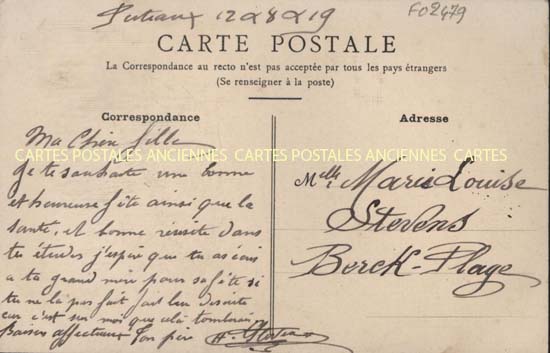 Puteaux 12 8 19
F02479
CARTE POSTALE
La Correspondance au recto n'est pas acceptée par tous les pays étrangers
(Se renseigner à la poste)
Correspondance
Adresse
Ma Chère fille
CARTES POSTALES ANCIENNES CARTES POSTALES ANCIENNES CARTES POSTALES ANCIENNES
Je te souhaite une bonne
et heureuse fête ainsi que la
santé, et bonne réussite dans
tu études j'espère que tu as écris
a ta grand mère pour sa fête si
tu ne l'a pas fait fait le de suite
car c'est sur moi que cela tomberait
Baiser affectueux Ton père
Melle Marie Louise
Stevens
Berck-Plage